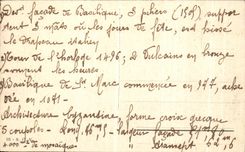 Devt façade de Basilique, 3 piliers (1505) suppor
tent 3 mâts où les jours de fête, est hissé
le drapeau italien
Tour de l'horloge 1496; 2 Vulcains en bronze
sonnent les heures
Basilique de St Marc commencée en 977, ache
vée en 1071
Architecture byzantine, forme croix grecque
5 coupoles - Long. 76m5 - largeur façade
4.000 m² de mosaïques transept 62,6